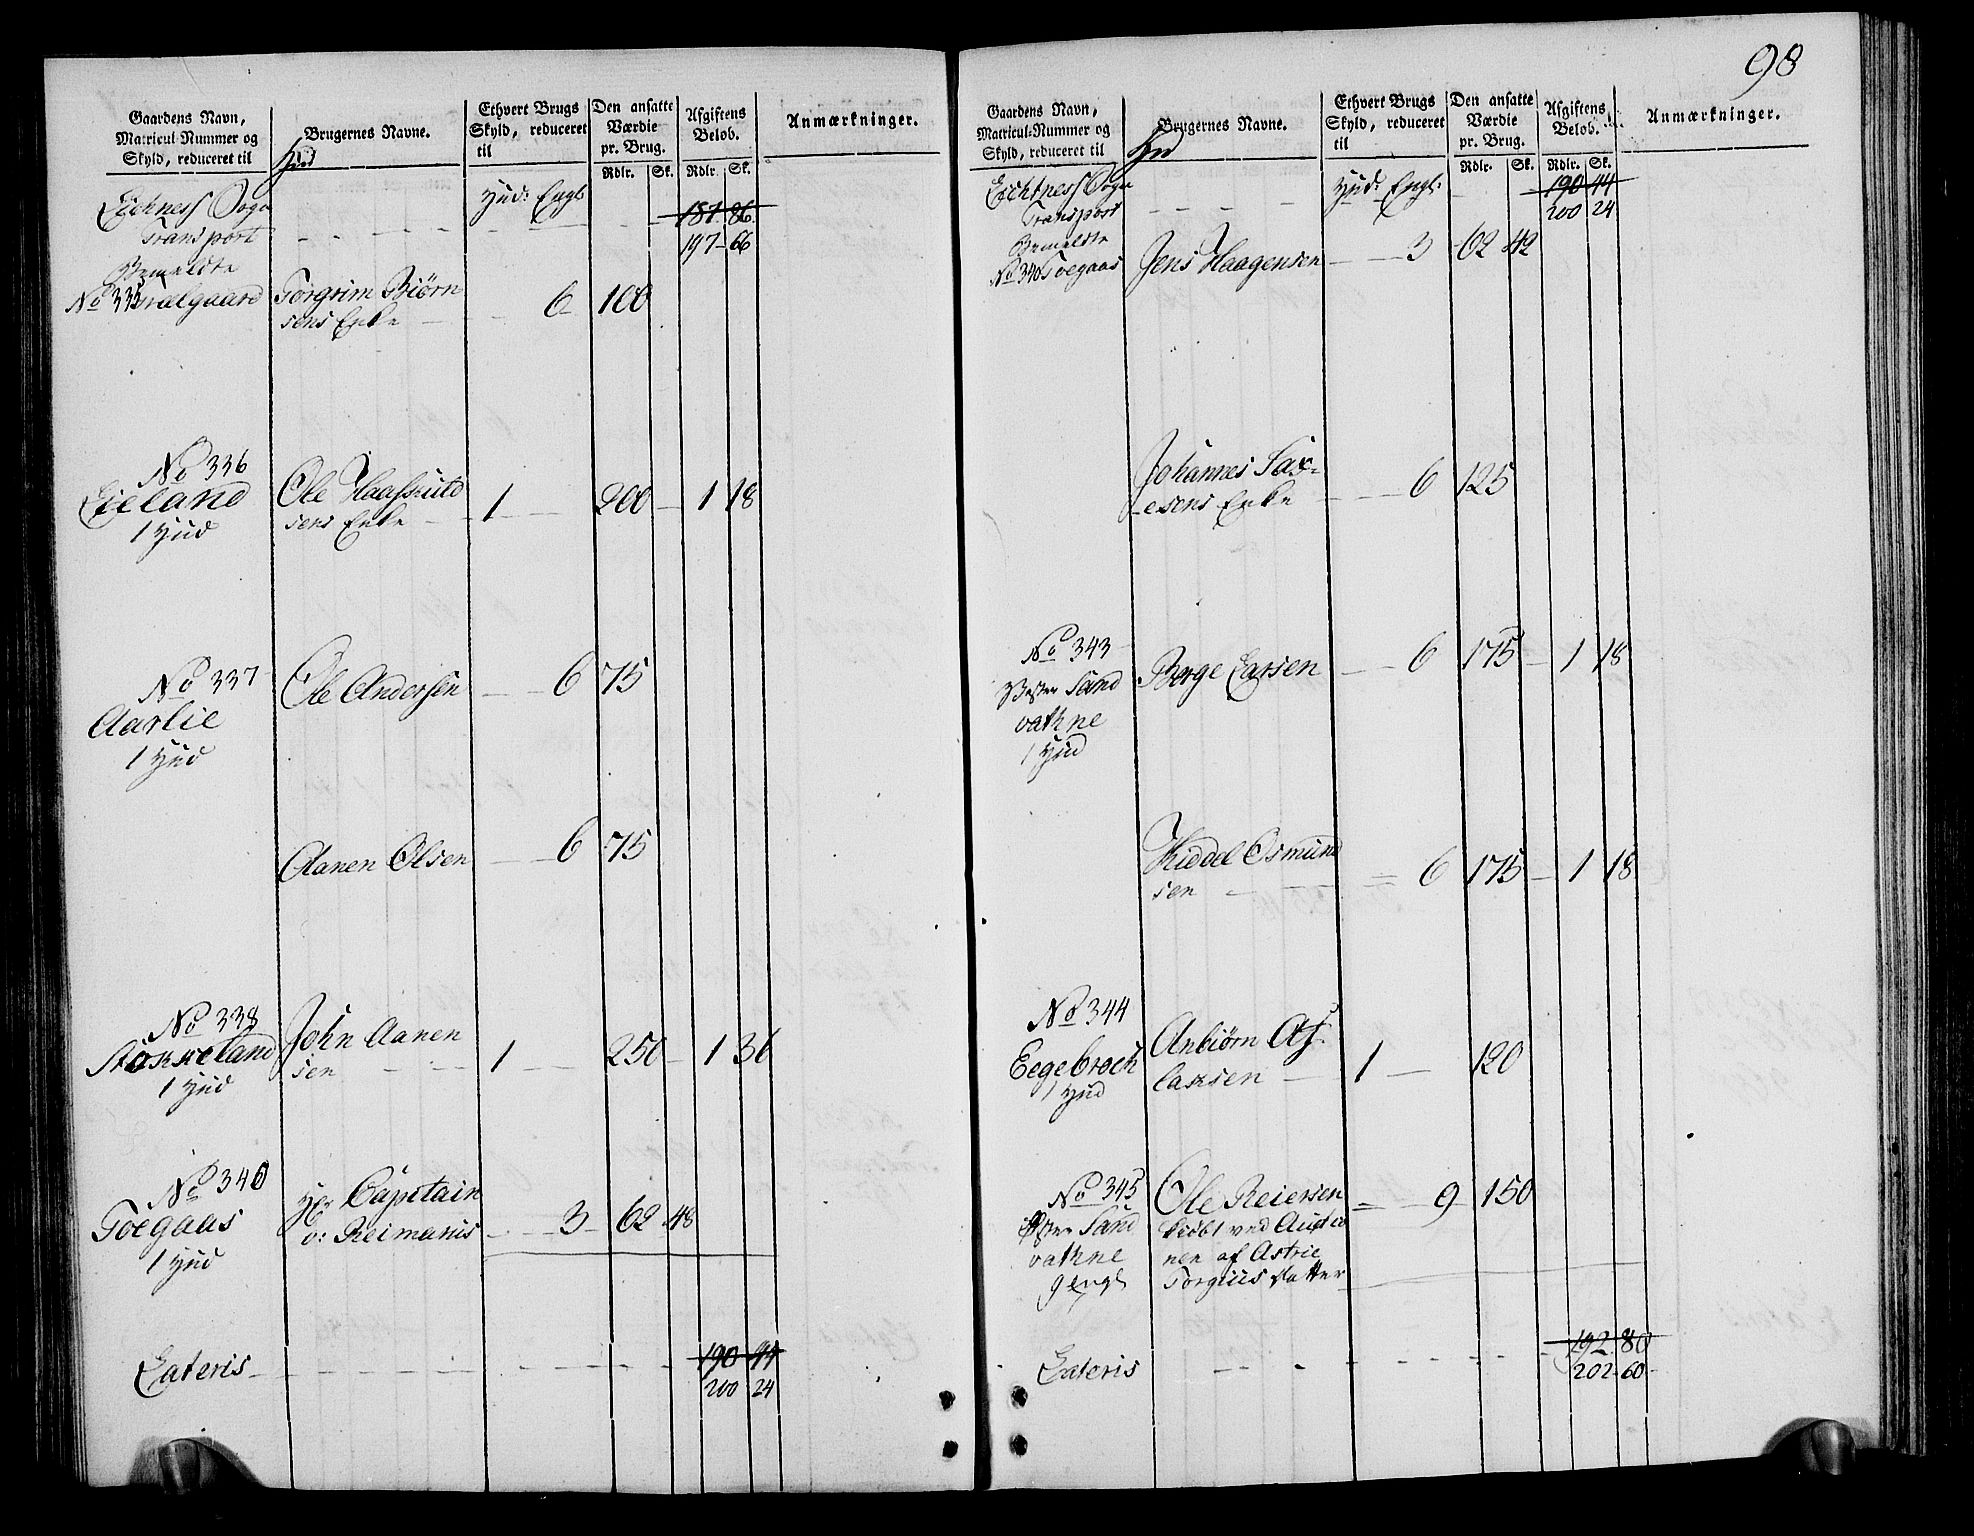 98
Gaardens Navn,
Matricul-Nummer og
Skyld, reduceret til
Brugernes Navne.
Ethvert Brugs
Skyld, reduceret
til
Den ansatte
Værdie
pr. Brug.
Afgiftens
Beløb.
Anmærkninger.
Rdlr. Sk. Rdlr. Sk.
Sogn
Hud: Engl:
187 86
Transport
197 66
Bemeldte
No 335 Torgrim Biørn
sens Enke 6 100
No 336
Eieland Ole
1 Hud sens Enke 1 200 1 18
No 337
Ole Andersen 6 75
Aarlie
1 Hud
Aanen Olsen 6 75
No 338
Støkkeland John Aanen
1 Hud sen 1 250 1 36
No 340
Toegaas Hr Capitain
1 Hud v: Reimanis 3 62 48
190 44
Lateris
200 24
Gaardens Navn,
Matricul-Nummer og
Skyld, reduceret til
Brugernes Navne.
Ethvert Brugs
Skyld, reduceret
til
Den ansatte
Værdie
pr. Brug.
Afgiftens
Beløb.
Anmærkninger.
Rdlr. Sk. Rdlr. Sk.
Sogn
Hud: Engl:
190 44
Transport
200 24
Bemeldte
No 340 Toegaas Jens Haagensen 3 62 42
Johannes Sax-
esens Enke 6 125
No 343
Vester Sand Berge Larsen 6 175 1 18
vathne
1 Hud
Osmund
sen 6 175 1 18
No 344
Eegebroch Anbiørn As
1 Hud laksen 1 120
No 345
Øster Sand Ole Reiersen 9 150
vathne kiøbt ved Auctio
9 Engl nen af Astrie
Torgiusdatter
192 80
Lateris
202 60